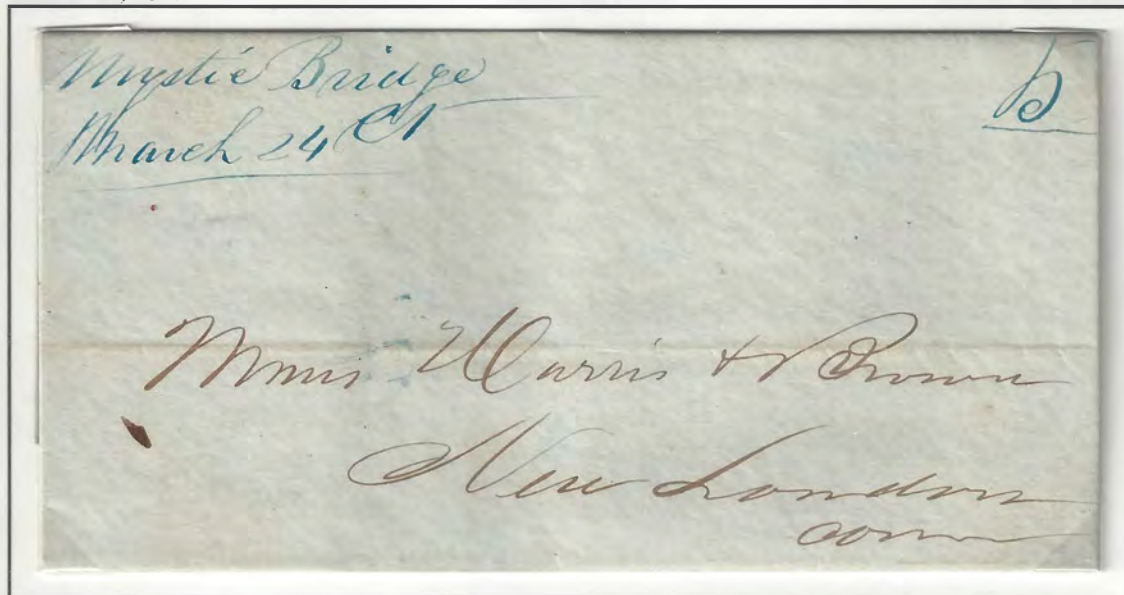 Mystic Bridge
March 24 Ct
5
Messrs Harris & Brown
New London
Conn